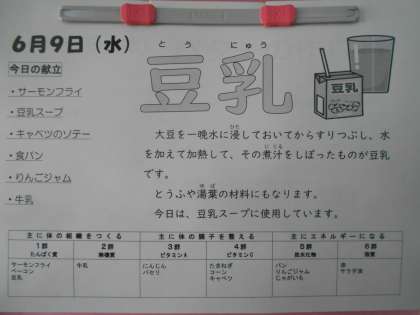 6月9日（水）
とう にゅう
豆乳
今日の献立
・サーモンフライ
・豆乳スープ
・キャベツのソテー
・食パン
・りんごジャム
・牛乳
大豆を一晩水に浸しておいてからすりつぶし、水
を加えて加熱して、その煮汁をしぼったものが豆乳
です。
とうふや湯葉の材料にもなります。
今日は、豆乳スープに使用しています。
主に体の組織をつくる 主に体の調子を整える 主にエネルギーになる
1群 2群 3群 4群 5群 6群
たんぱく質 無機質 ビタミンA ビタミンC 炭水化物 脂質
サーモンフライ 牛乳 にんじん たまねぎ パン 油
ベーコン パセリ コーン りんごジャム サラダ油
豆乳 キャベツ じゃがいも